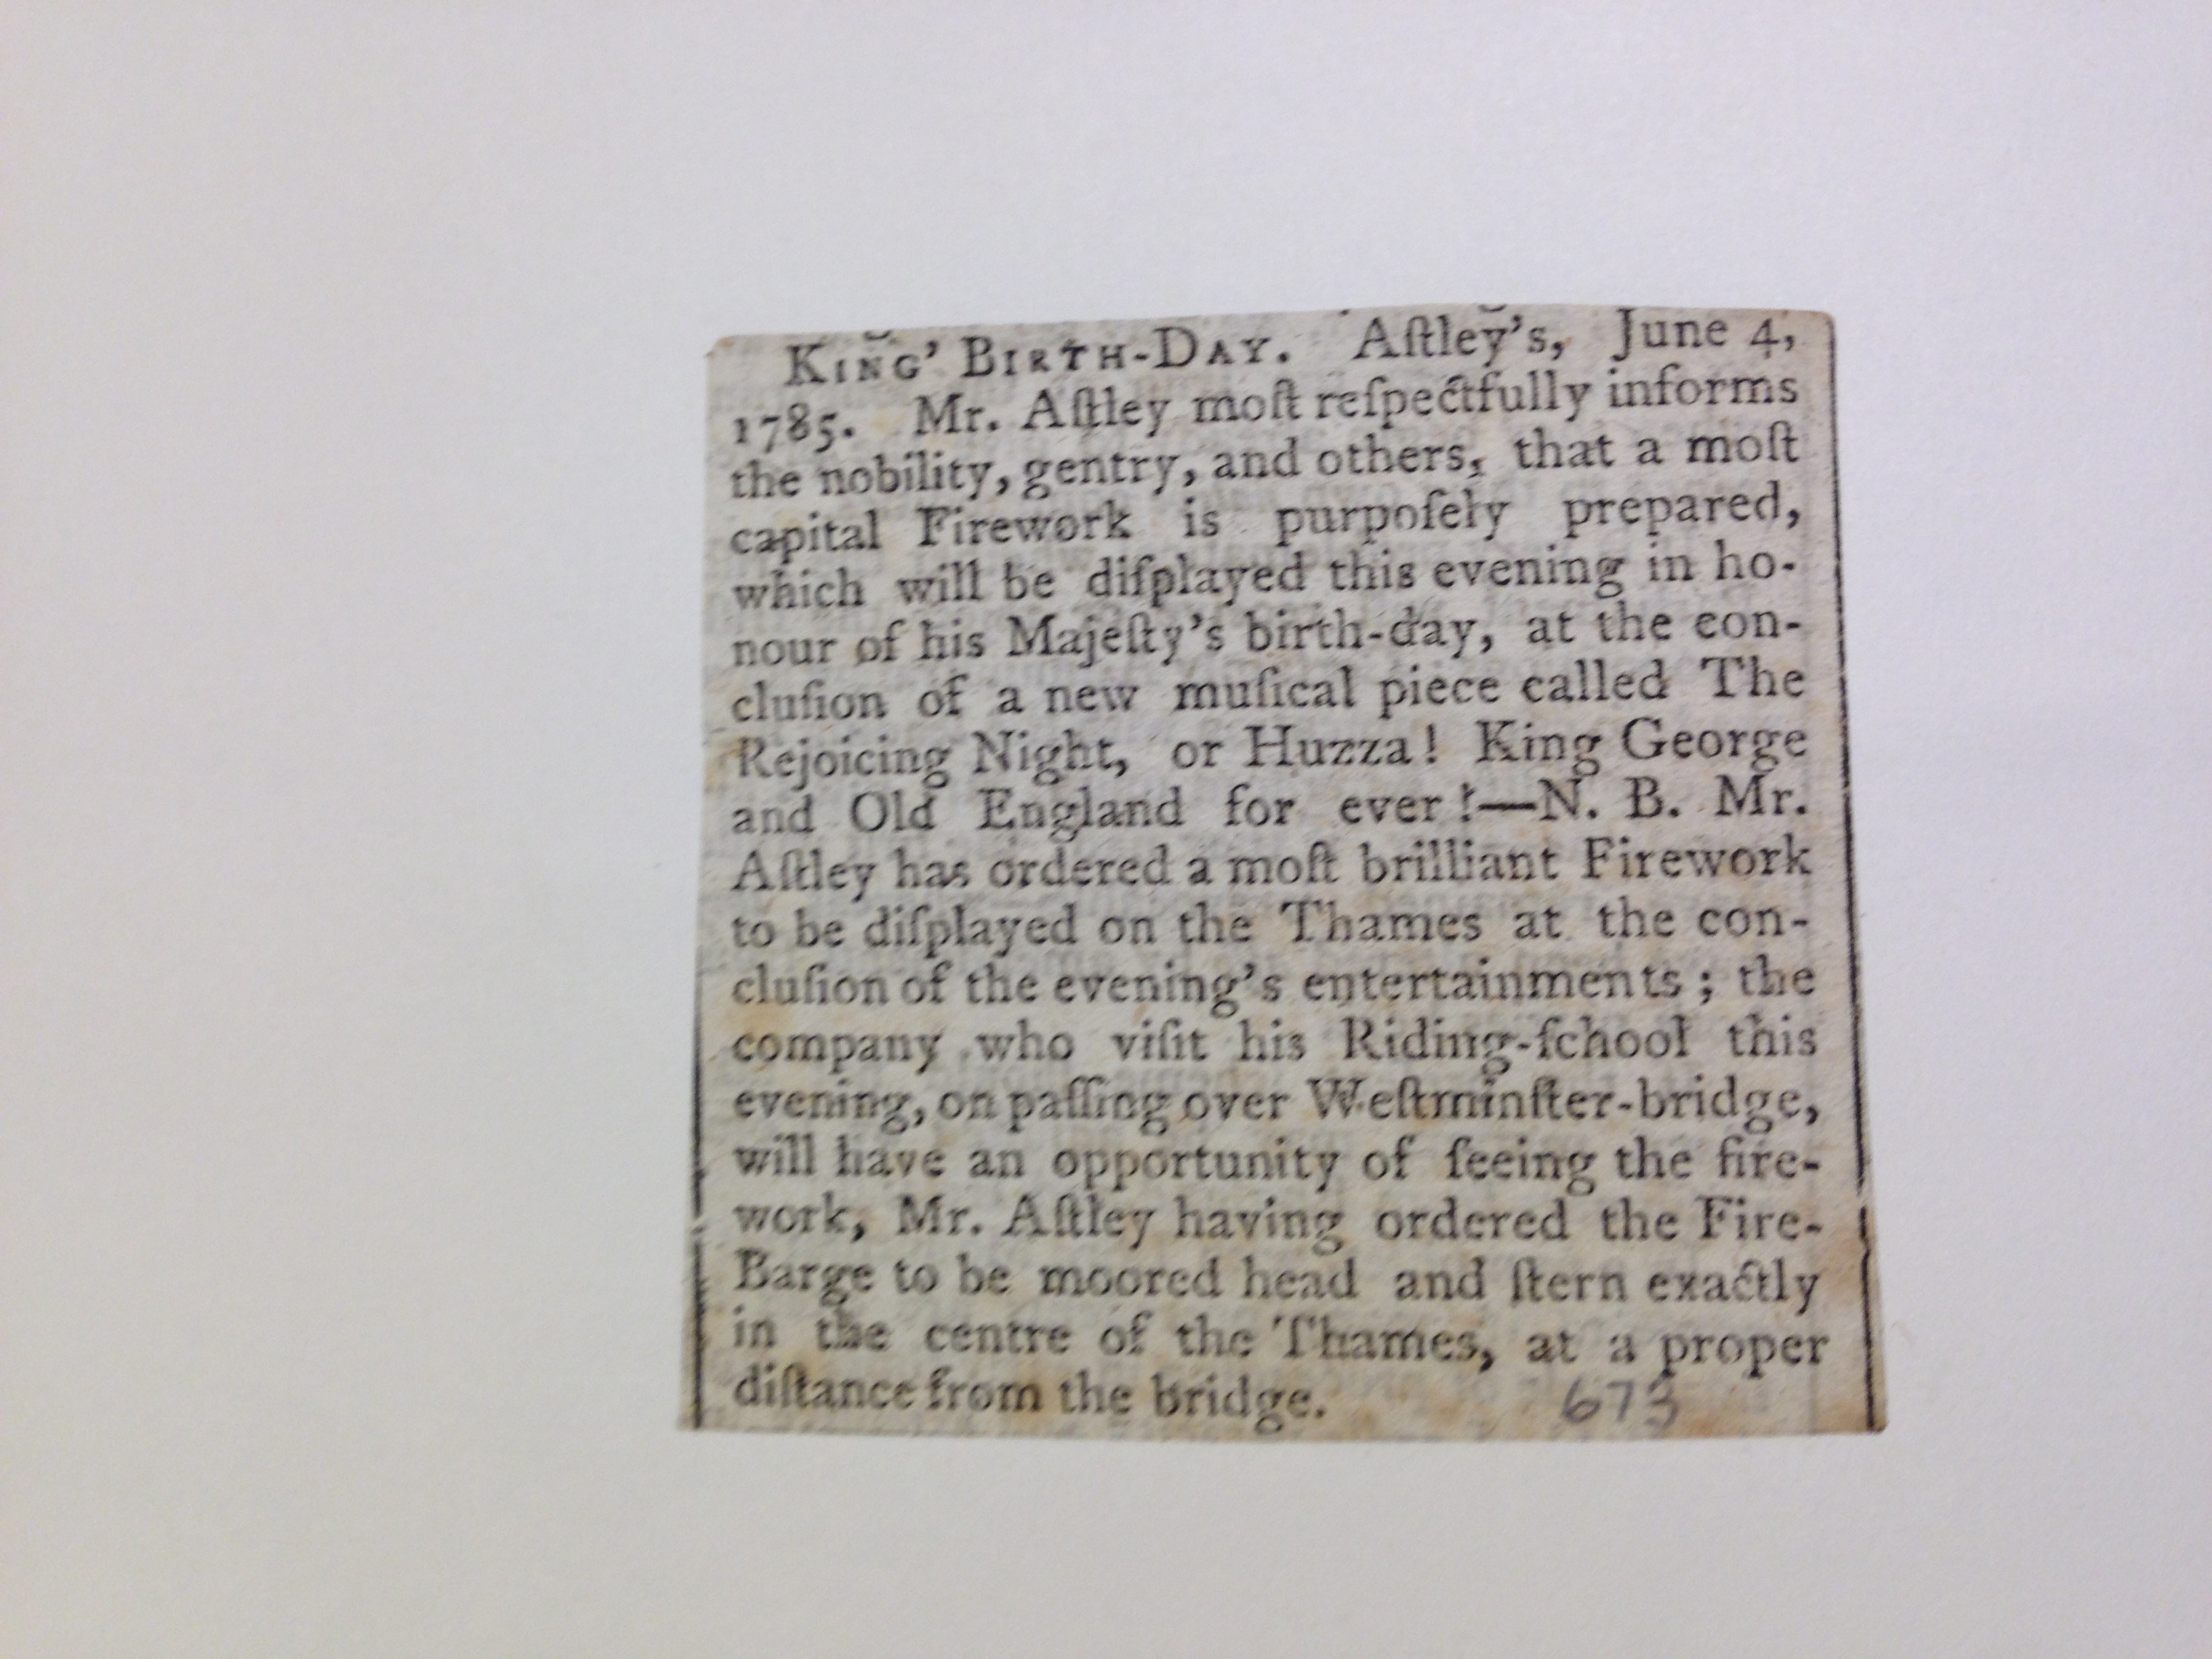 KING' BIRTH-DAY. Aſtley's, June 4,
1785. Mr. Aſtley moſt reſpectfully informs
the nobility, gentry, and others, that a moſt
capital Firework is purpoſely prepared,
which will be diſplayed this evening in ho-
nour of his Majeſty's birth-day, at the con-
cluſion of a new muſical piece called The
Rejoicing Night, or Huzza! King George
and Old England for ever!—N. B. Mr.
Aſtley has ordered a moſt brilliant Firework
to be diſplayed on the Thames at the con-
cluſion of the evening's entertainments; the
company who viſit his Riding-ſchool this
evening, on paſſing over Weſtminſter-bridge,
will have an opportunity of ſeeing the fire-
work, Mr. Aſtley having ordered the Fire-
Barge to be moored head and ſtern exactly
in the centre of the Thames, at a proper
diſtance from the bridge. 673